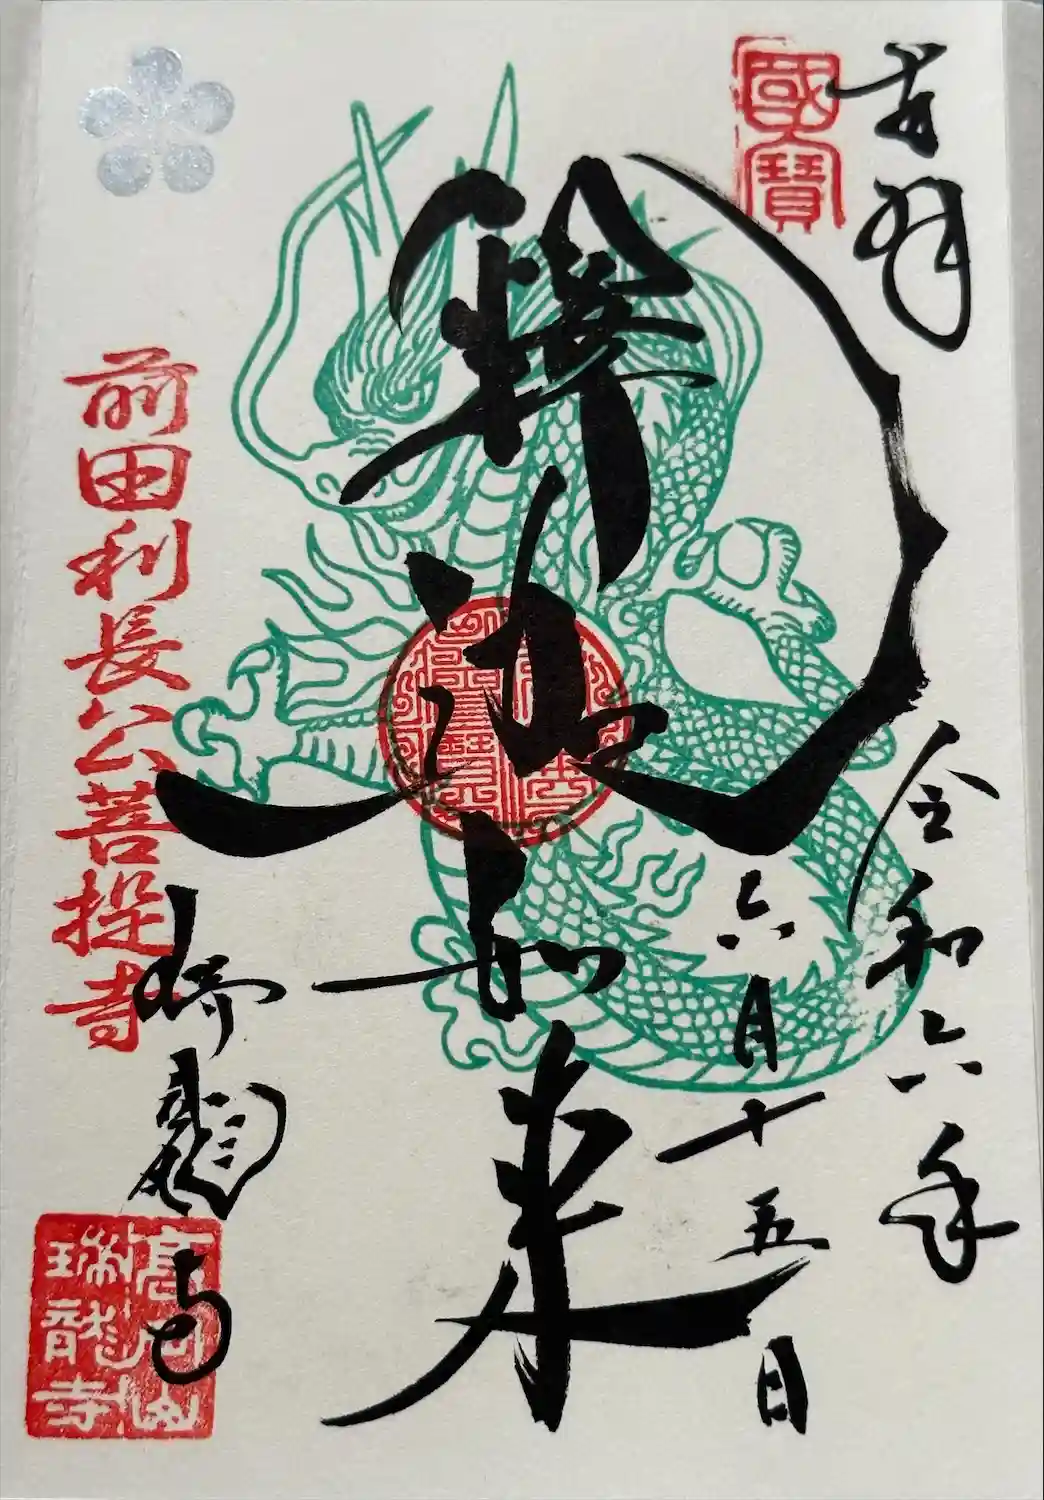 奉拝
國寳
令和六年
六月十五日
釋迦如来
前田利長公菩提寺
瑞龍寺
高岡山
瑞龍寺